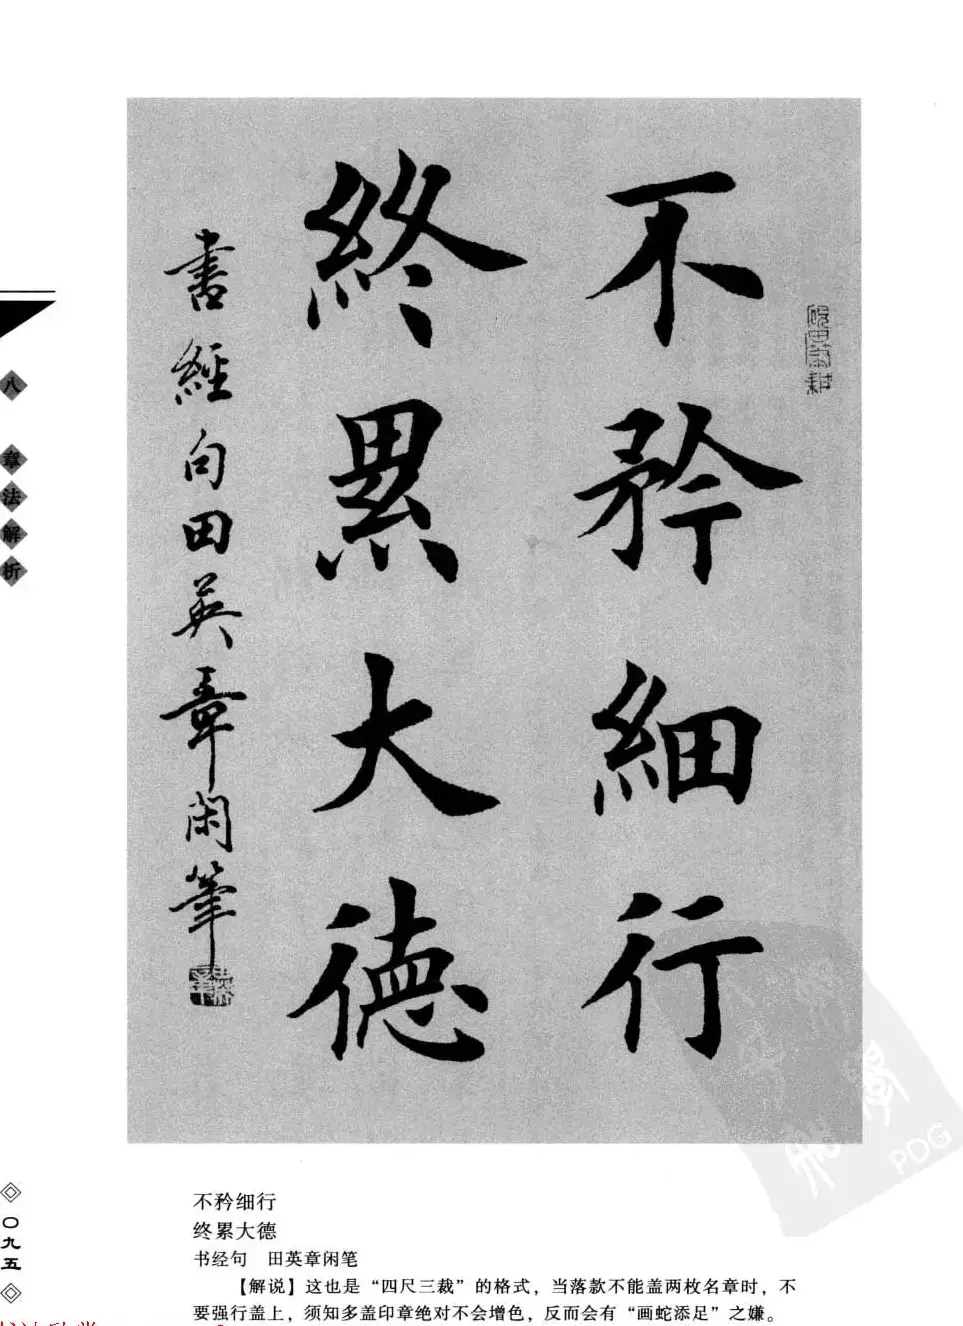 不矜細行
終累大德
書經句田英章閑筆
八 章法解析
〇九五
不矜细行
终累大德
书经句 田英章闲笔
【解说】这也是“四尺三裁”的格式，当落款不能盖两枚名章时，不
要强行盖上，须知多盖印章绝对不会增色，反而会有“画蛇添足”之嫌。
PDG